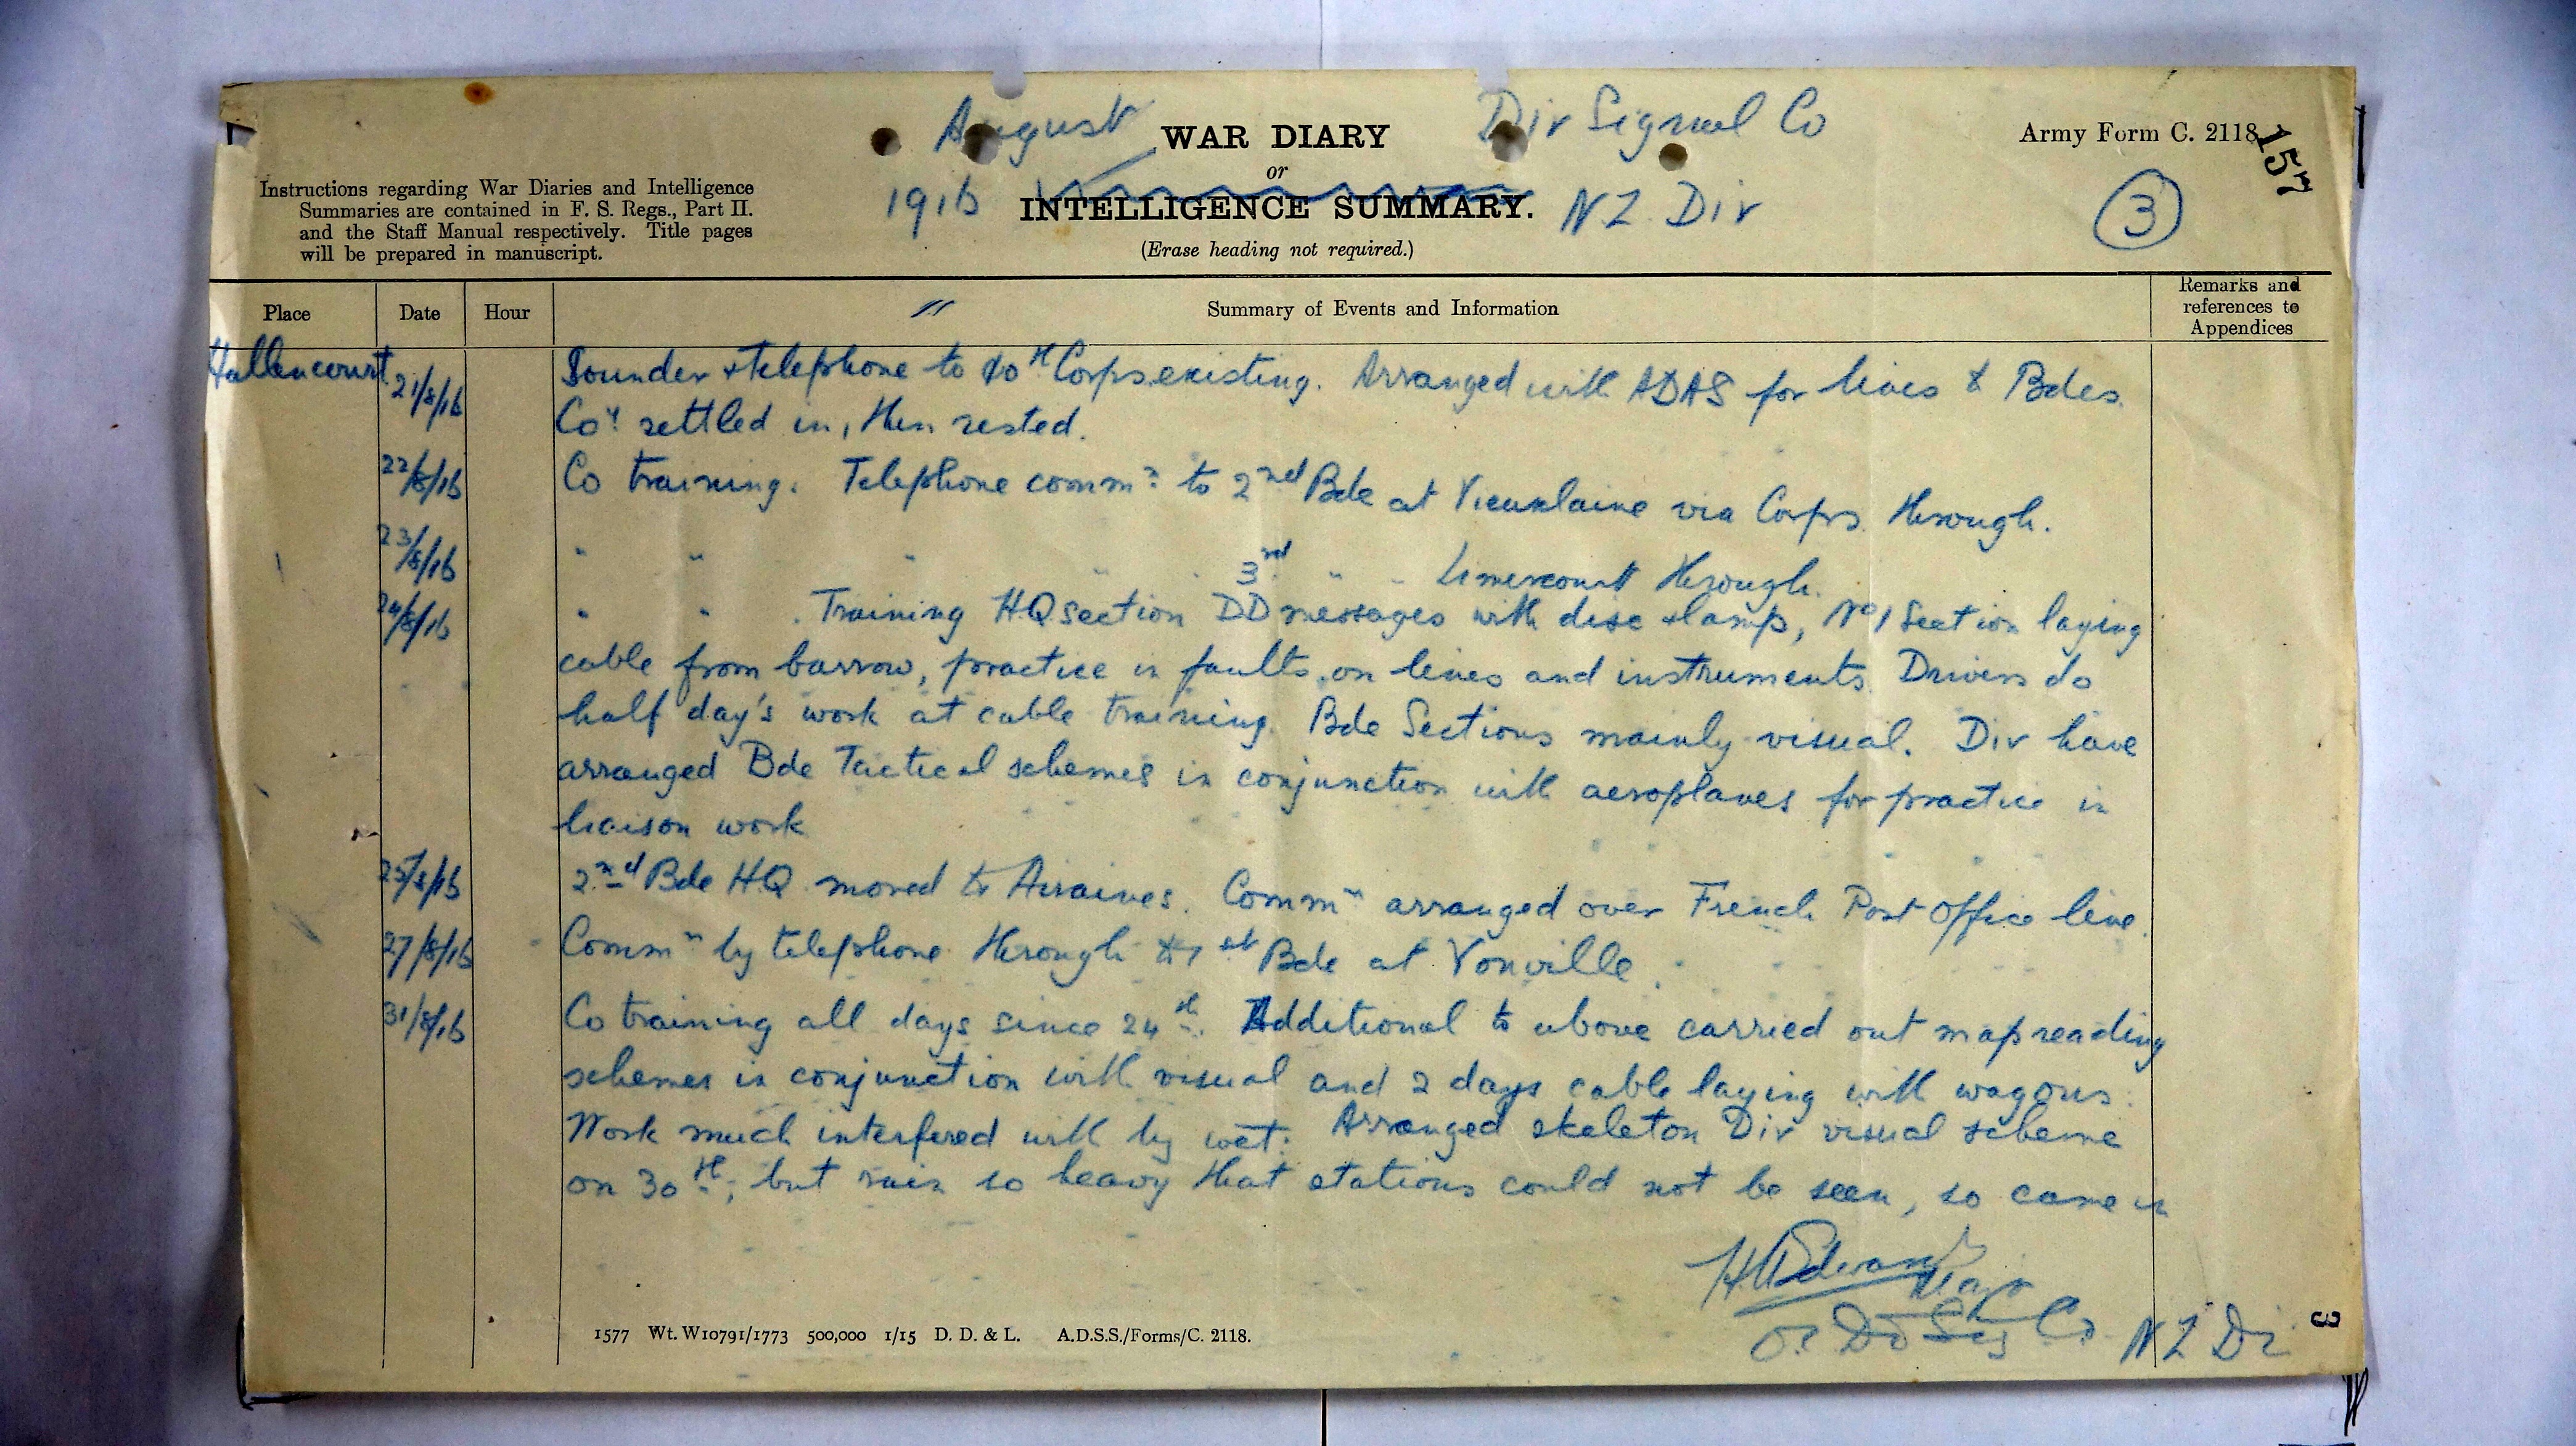 August
WAR DIARY
Div Signal Co
Army Form C. 2118
157
or
1916
INTELLIGENCE SUMMARY.
NZ Div
3
(Erase heading not required.)
Instructions regarding War Diaries and Intelligence
Summaries are contained in F. S. Regs., Part II.
and the Staff Manual respectively. Title pages
will be prepared in manuscript.
Place
Date
Hour
Summary of Events and Information
Remarks and
references to
Appendices
Hallencourt
21/8/16
Sounder & telephone to 10th Corps existing. Arranged with ADAS for lines to Bdes.
Coy settled in, then rested.
22/8/16
Co training. Telephone commn to 2nd Bde at Vieuxlaine via Corps through.
23/8/16
" " " " 3rd " " Limercourt through.
24/8/16
" " . Training HQ section DD messages with disc & lamp, No 1 Section laying
cable from barrow, practice in faults on lines and instruments. Drivers do
half day's work at cable training. Bde Sections mainly visual. Div have
arranged Bde Tactical schemes in conjunction with aeroplanes for practice in
liaison work
25/8/16
2nd Bde HQ moved to Airaines. Commn arranged over French Post Office line.
27/8/16
Commn by telephone through to 1st Bde at Yonville.
31/8/16
Co training all days since 24th. Additional to above carried out map reading
schemes in conjunction with visual and 2 days cable laying with wagons.
Work much interfered with by wet. Arranged skeleton Div visual scheme
on 30th, but rain so heavy that stations could not be seen, so came in
Major
OC Div Sig Co NZ Di
3
1577 Wt. W10791/1773 500,000 1/15 D. D. & L. A.D.S.S./Forms/C. 2118.